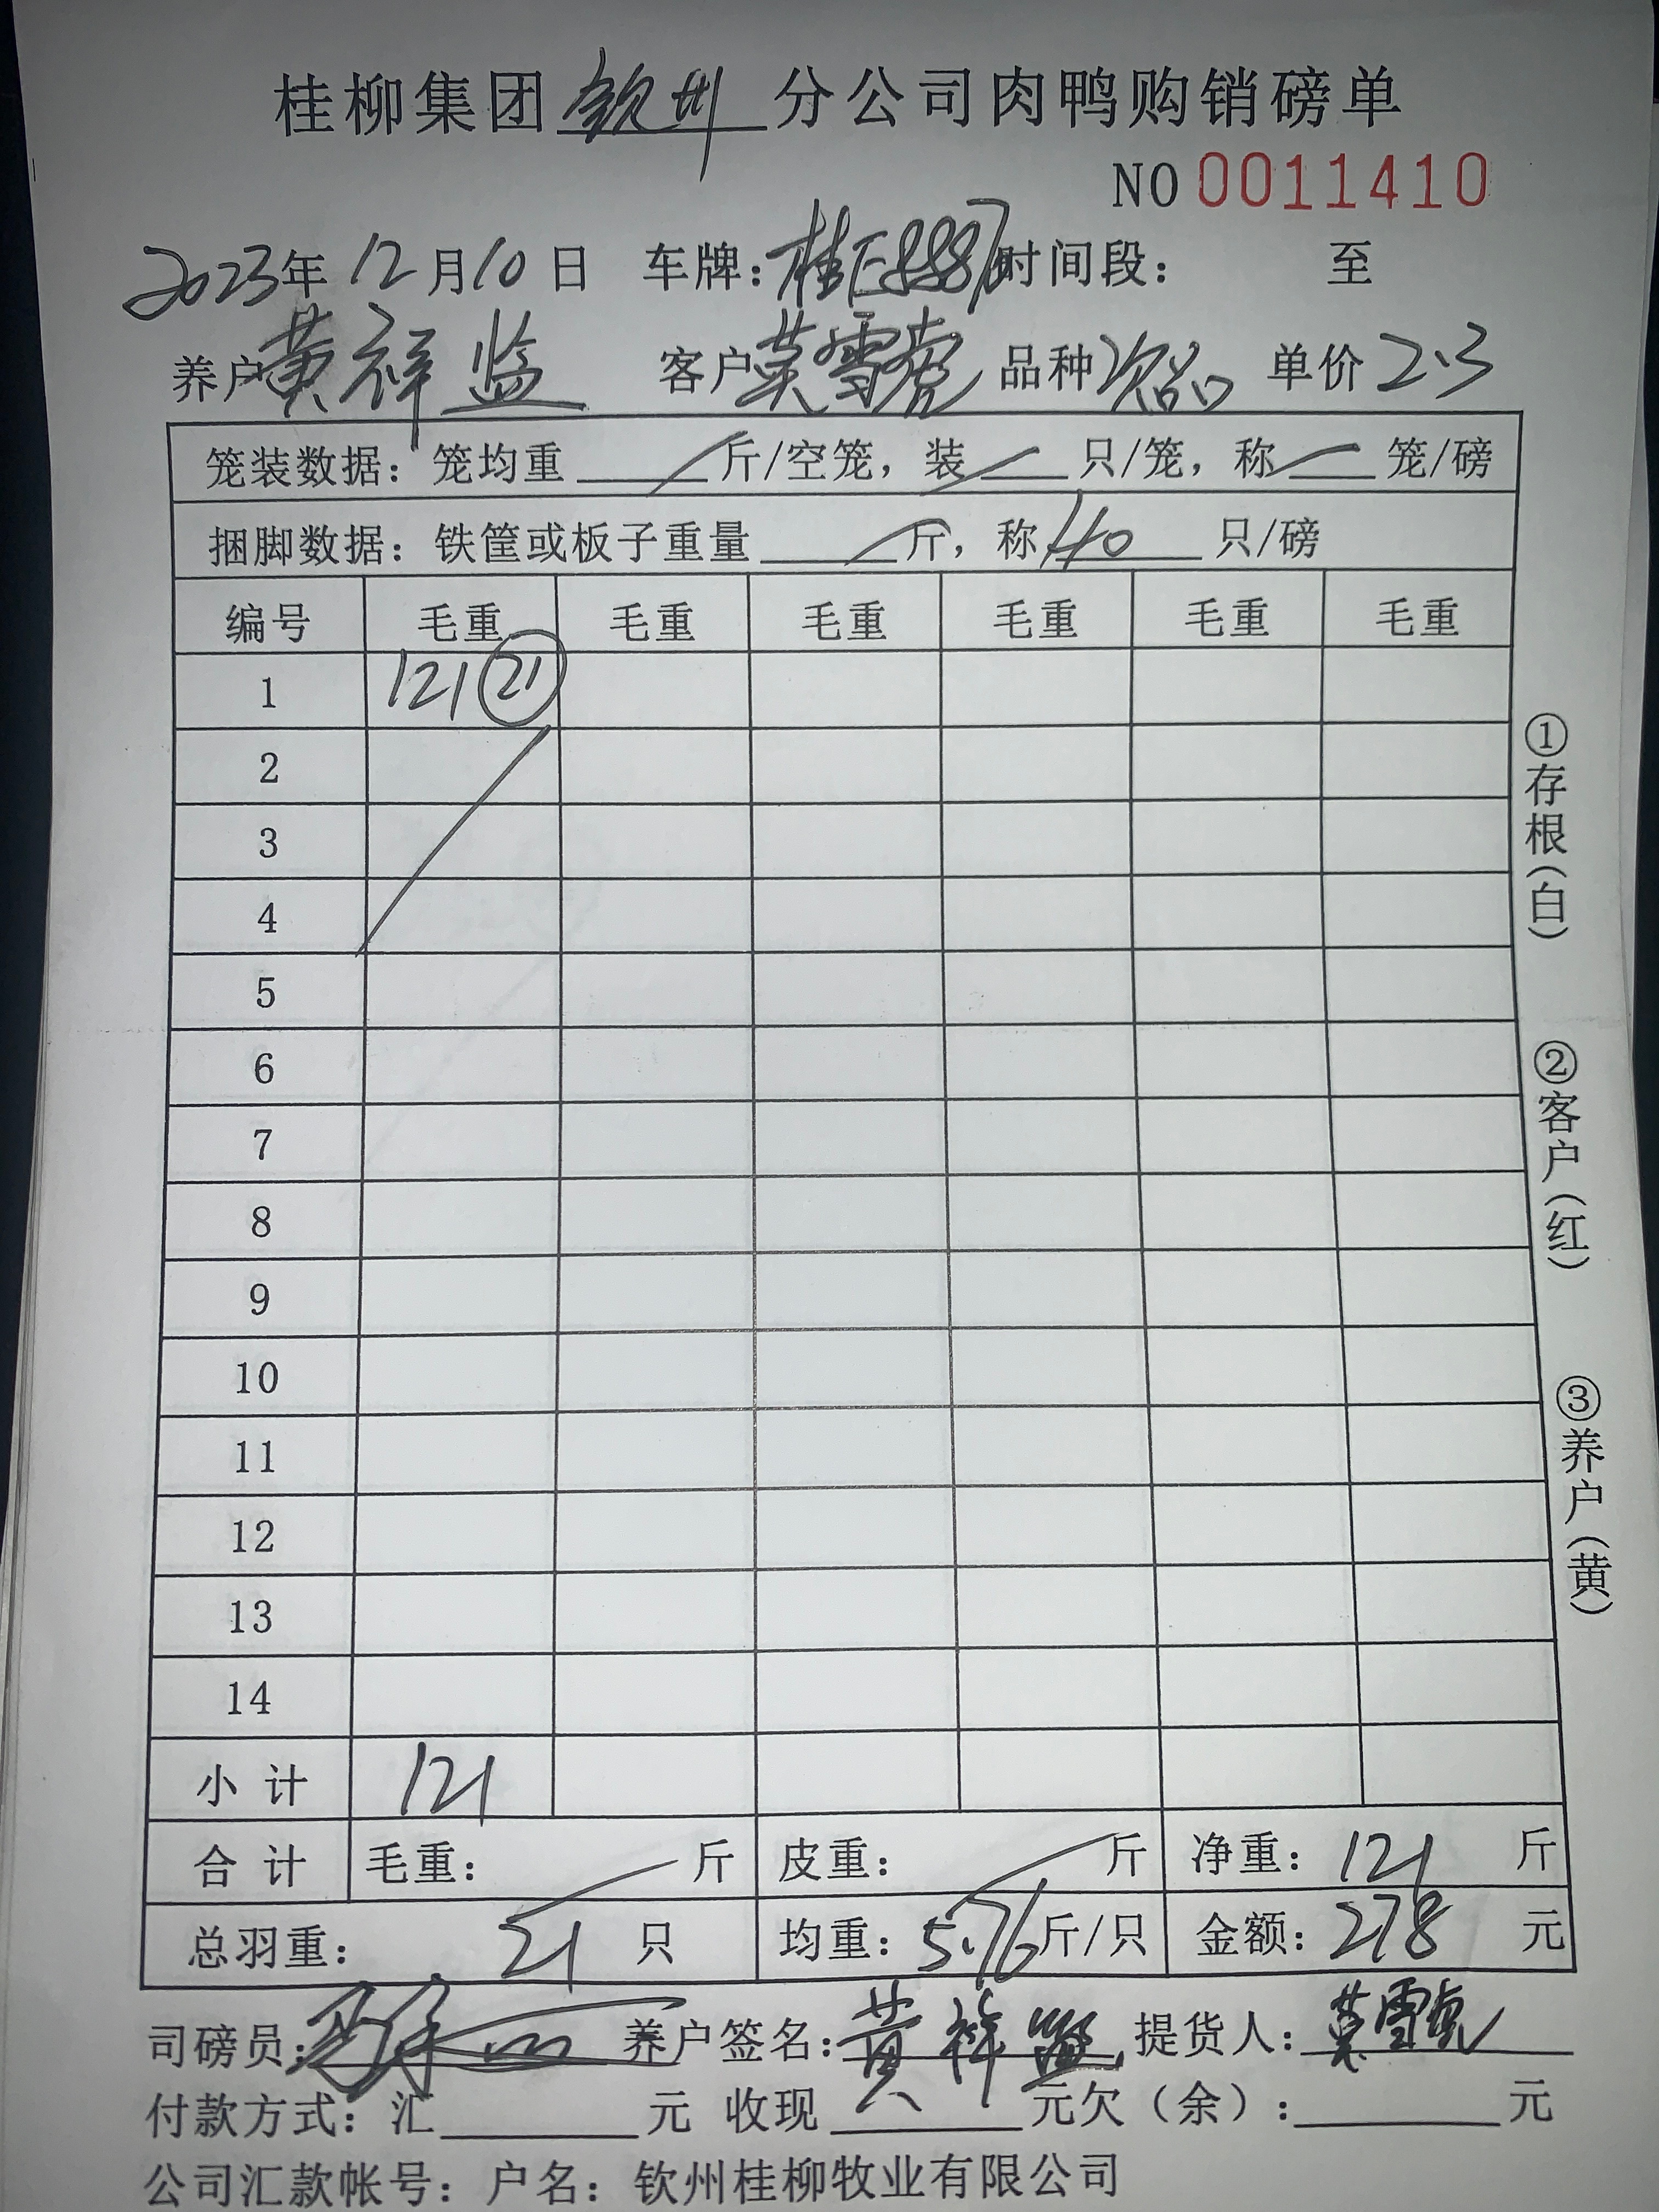 桂柳集团钦州分公司肉鸭购销磅单
NO 0011410
2023年12月10日 车牌：桂E8887时间段： 至
养户黄祥监 客户莫雪虎 品种次品 单价2.3
笼装数据：笼均重 斤/空笼，装 只/笼，称 笼/磅
捆脚数据：铁筐或板子重量 斤，称40只/磅
编号 毛重 毛重 毛重 毛重 毛重 毛重
1 121 21
2
3
4
5
6
7
8
9
10
11
12
13
14
小计 121
合计 毛重： 斤 皮重： 斤 净重：121斤
总羽重：21只 均重：5.76斤/只 金额：278元
司磅员： 养户签名：黄祥监 提货人：莫雪虎
付款方式：汇 元 收现 元欠（余）： 元
公司汇款帐号：户名：钦州桂柳牧业有限公司
①存根（白）
②客户（红）
③养户（黄）